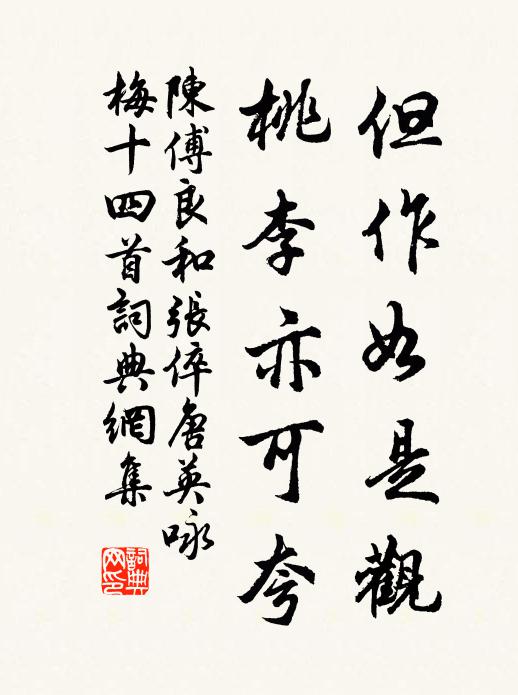 但作如是觀
桃李亦可夸
陳傅良和張倅唐英咏
梅十四首詞典網集
詞典
网印